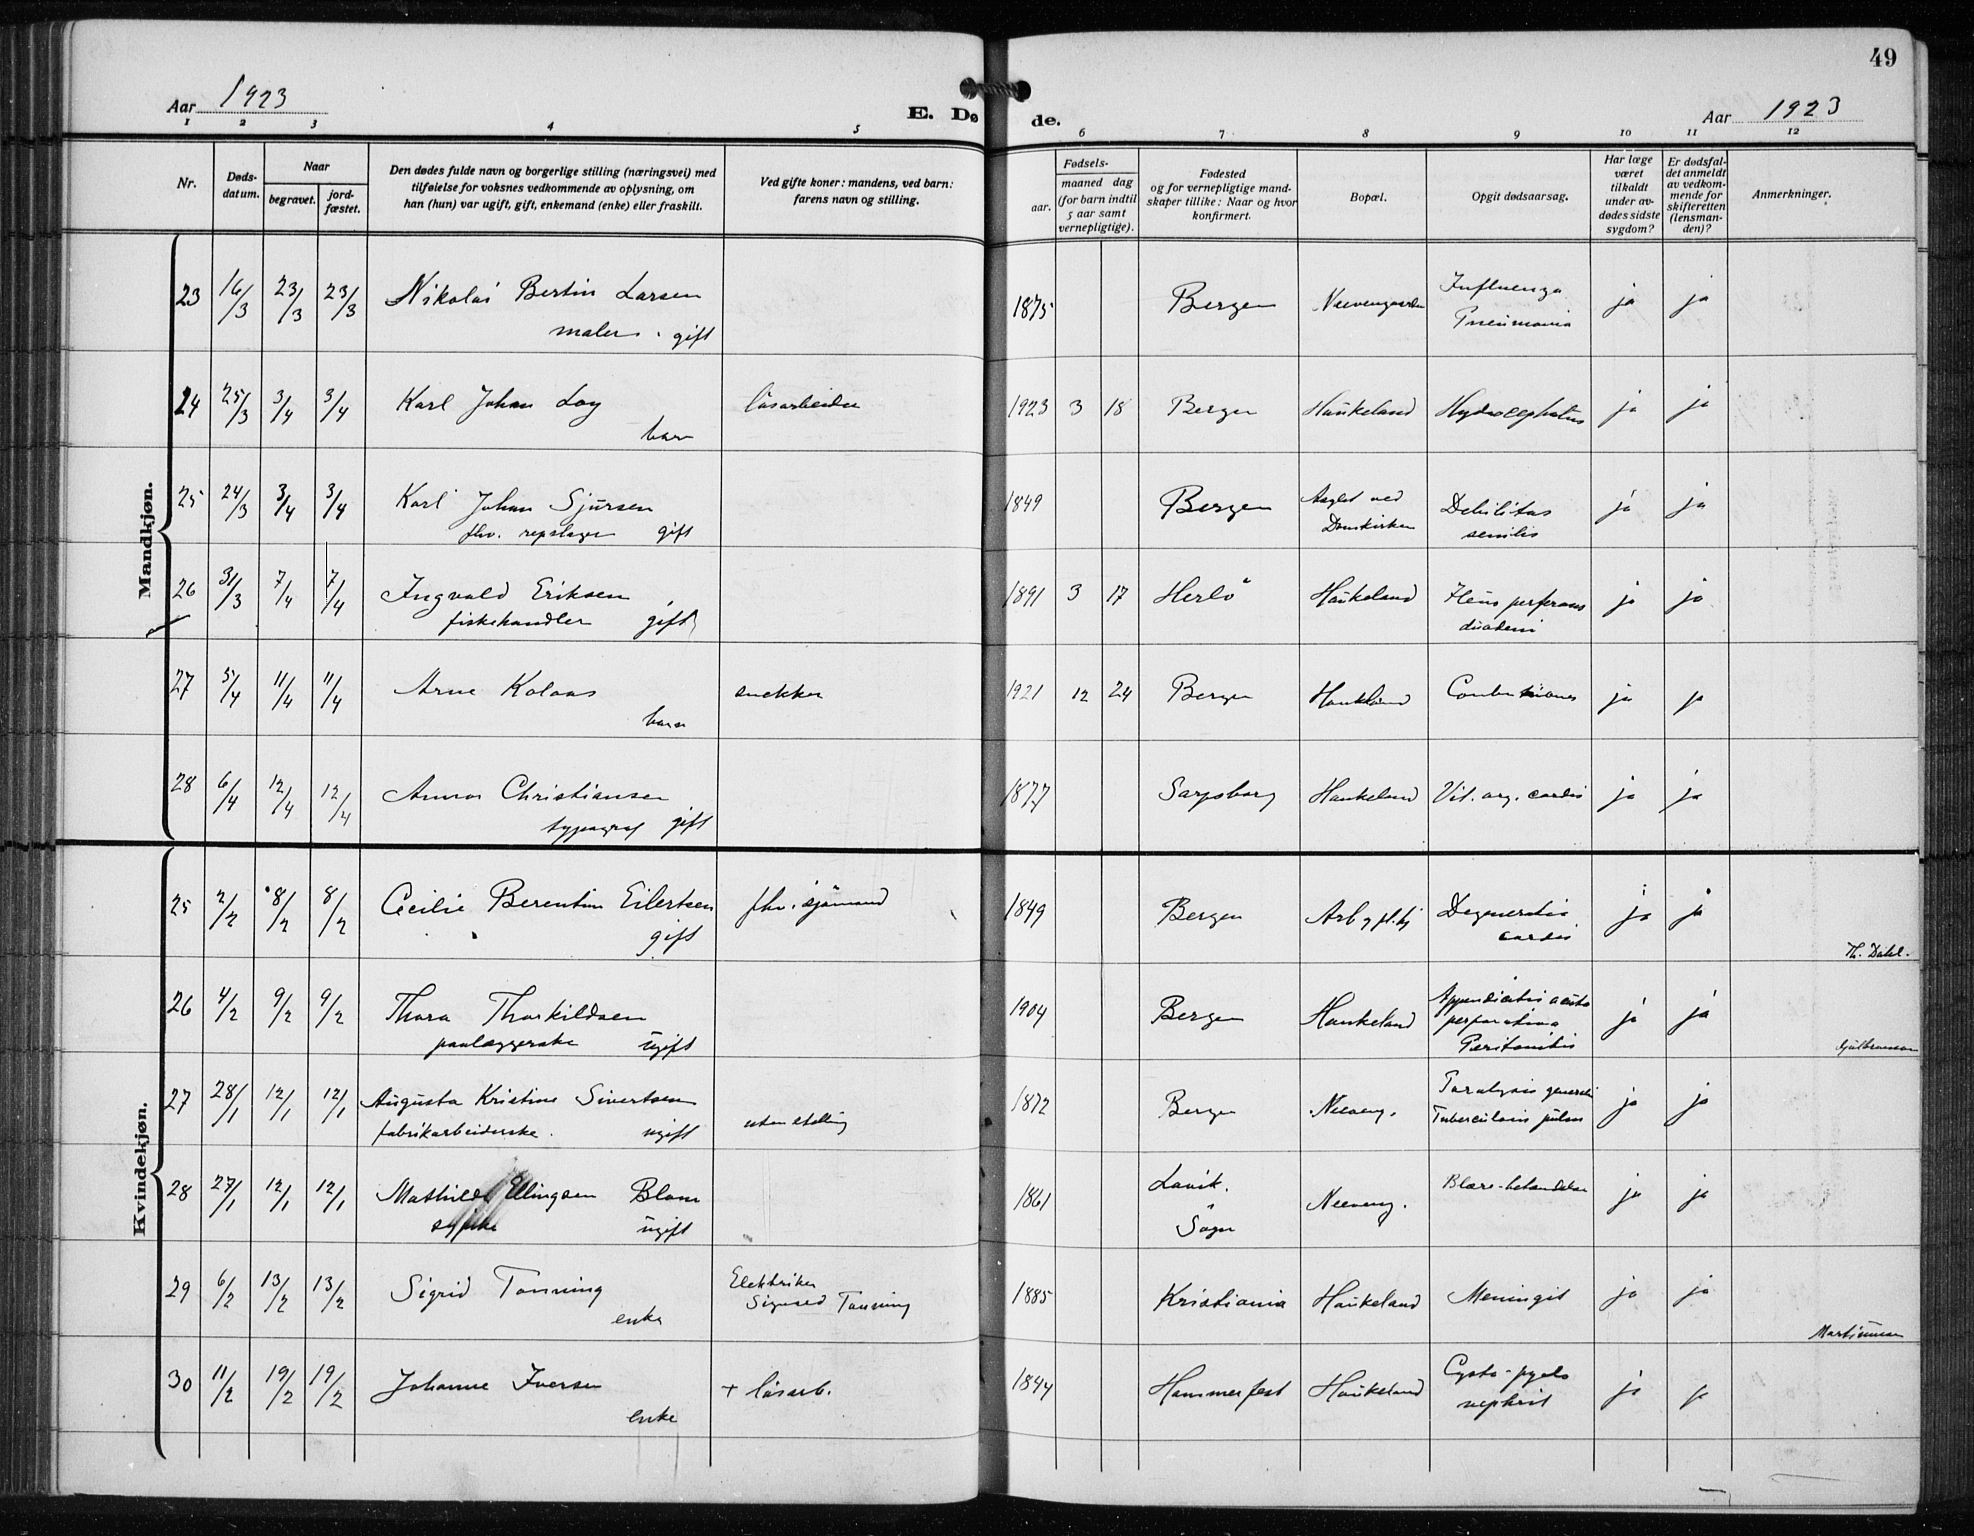 49
Aar 1923
E. Dø de.
Aar 1923
1 2 3 4 5 6 7 8 9 10 11 12
Nr.
Døds-
datum.
Naar
begravet.
jord-
fæstet.
Den dødes fulde navn og borgerlige stilling (næringsvei) med
tilføielse for voksnes vedkommende av oplysning, om
han (hun) var ugift, gift, enkemand (enke) eller fraskilt.
Ved gifte koner: mandens, ved barn:
farens navn og stilling.
Fødsels-
aar.
maaned dag
(for barn indtil
5 aar samt
vernepligtige).
Fødested
og for vernepligtige mand-
skaper tillike: Naar og hvor
konfirmert.
Bopæl.
Opgit dødsaarsag.
Har læge
været
tilkaldt
under av-
dødes sidste
sygdom?
Er dødsfal-
det anmeldt
av vedkom-
mende for
skifteretten
(lensman-
den)?
Anmerkninger.
Mandkjøn.
23 16/3 23/3 23/3 Nikolai Bertin Larsen 1875 Bergen Neevengaarden Influenza ja ja
maler. gift Pneumonia
24 25/3 3/4 3/4 Karl Johan Loy løsarbeider 1923 3 18 Bergen Haukeland Hydrocephalus ja ja
barn
25 24/3 3/4 3/4 Karl Johan Sjursen 1849 Bergen ved Debilitas ja ja
fhv. repslager gift Domkirken senilis
26 31/3 7/4 7/4 Ingvald Eriksen 1891 3 17 Herlö Haukeland perforans ja ja
fiskehandler gift
27 5/4 11/4 11/4 Arne Kolaas snekker 1921 12 24 Bergen Haukeland ja ja
barn
28 6/4 12/4 12/4 Christiansen 1877 Sarpsborg Haukeland Vit. org. cordis ja ja
typograf gift
Kvindekjøn.
25 2/2 8/2 8/2 Cecilie Berentin Eilertsen fhv. sjømand 1849 Bergen Degeneratio ja ja
gift cordis Th. Dahl.
26 4/2 9/2 9/2 Thora Thorkildsen 1904 Bergen Haukeland Appendicitis acuta ja ja
paalæggerske ugift perforativa
Peritonitis
27 28/1 12/1 12/1 Augusta Kristine Sivertsen uten stilling 1872 Bergen Neeveng. Paralysis generalis ja ja
fabrikarbeiderske. ugift Tuberculosis pulm
28 27/1 12/1 12/1 Mathilde Ellingsen Blom 1861 Lavik. Neeveng. ja ja
sypike ugift Sogn
29 6/2 13/2 13/2 Sigrid Tonning Elektriker 1885 Kristiania Haukeland Meningit ja ja
enke Sigurd Tonning Martinussen
30 11/2 19/2 19/2 Johanne Iversen + løsarb. 1844 Hammerfest Haukeland Cysto-pyelo ja ja
enke nephrit